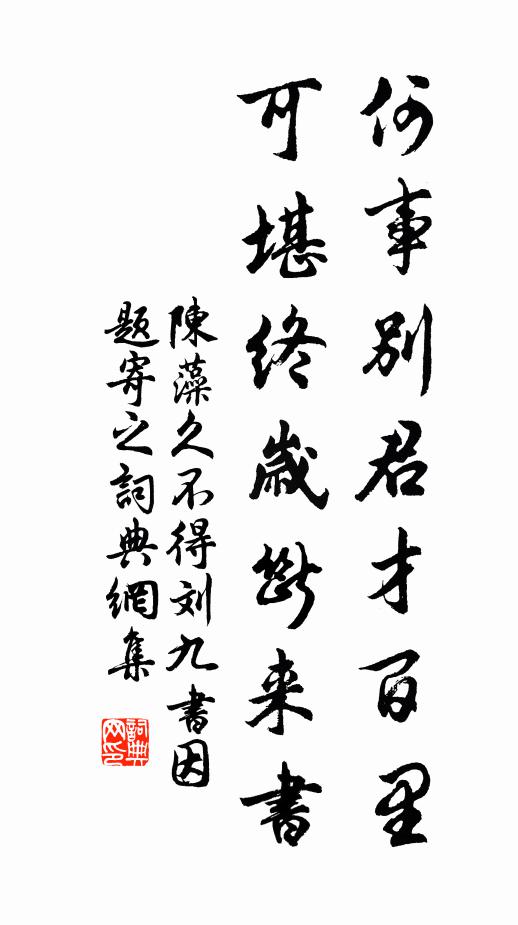 何事别君才百里
可堪终歳斷来書
陳藻久不得刘九書因
題寄之詞典網集
詞典
网印